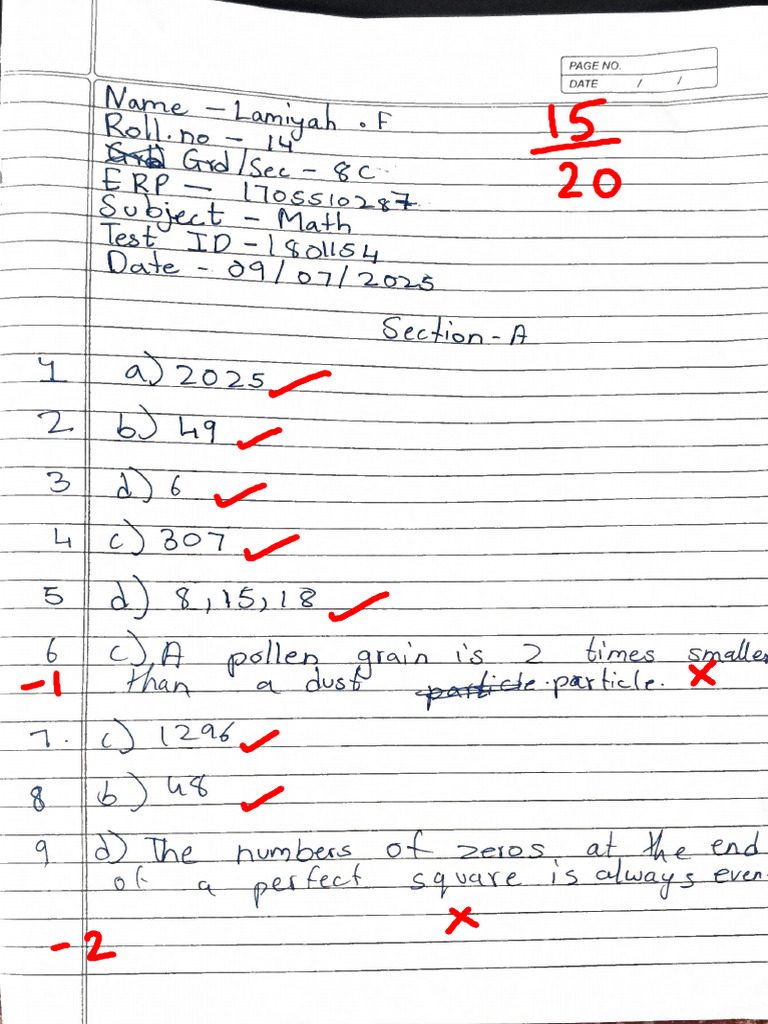 PAGE NO.
DATE / /
Name - Lamiyah . F
15
Roll.no - 14
20
Grd/Sec - 8C
ERP - 1705510287
Subject - Math
Test ID - 1801154
Date - 09/07/2025
Section - A
1 a) 2025
2 b) 49
3 d) 6
4 c) 307
5 d) 8, 15, 18
6 c) A pollen grain is 2 times smaller
-1 than a dust particle.
7. c) 1296
8 b) 48
9 d) The numbers of zeros at the end
of a perfect square is always even.
-2